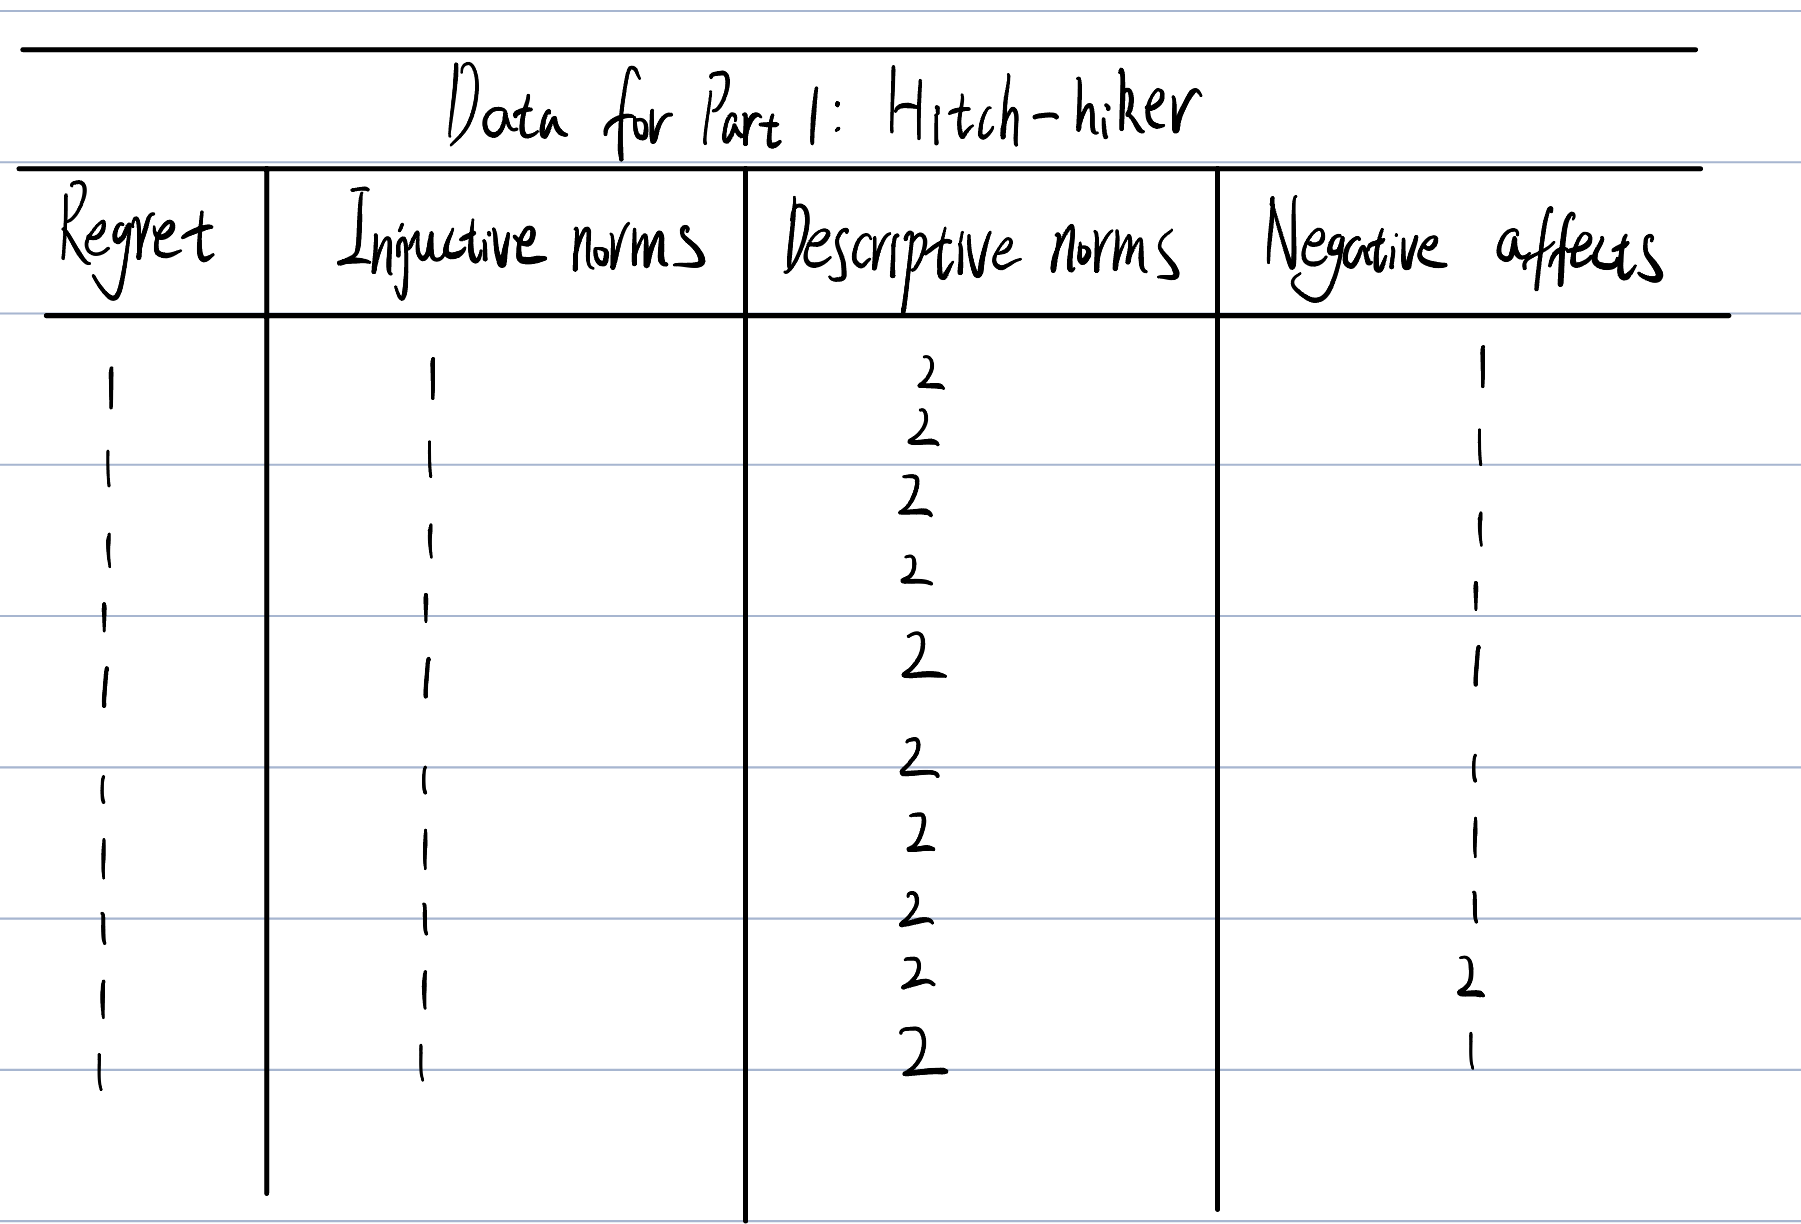 Data for Part 1: Hitch-hiker
Regret Injuctive norms Descriptive norms Negative affects
1 1 2 1
1 1 2 1
1 1 2 1
1 1 2 1
1 1 2 1
1 1 2 1
1 1 2 1
1 1 2 1
1 1 2 2
1 1 2 1